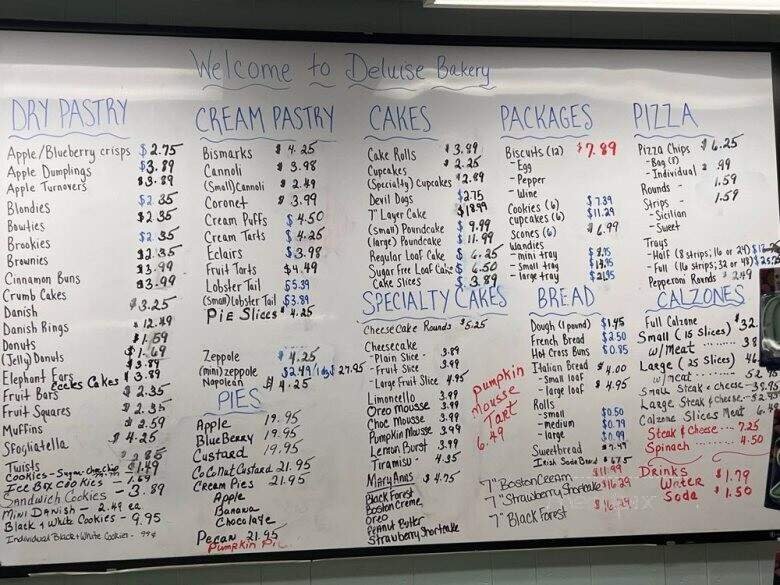 Welcome to Deluise Bakery
DRY PASTRY
Apple/Blueberry crisps $2.75
Apple Dumplings $3.89
Apple Turnovers $3.89
Blondies $2.35
Bowties $2.35
Brookies $2.35
Brownies $2.35
Cinnamon Buns $3.99
Crumb Cakes $3.99
Danish $3.25
Danish Rings $12.49
Donuts $1.59
(Jelly) Donuts $1.69
Elephant Ears $3.89
Eccles Cakes $3.89
Fruit Bars $2.35
Fruit Squares $2.35
Muffins $2.59
Sfogliatella $4.25
Twists 2.85
Cookies - Sugar- Choc Chip $1.49
Ice Box Cookies - 1.69
Sandwich Cookies - 3.89
Mini Danish - 2.49 ea
Black & White Cookies - 9.95
Individual Black & White Cookies - 99¢
CREAM PASTRY
Bismarks $4.25
Cannoli $3.98
(Small) Cannoli $2.49
Coronet $3.99
Cream Puffs $4.50
Cream Tarts $4.25
Eclairs $3.98
Fruit Tarts $4.49
Lobster Tail $5.39
(Small) Lobster Tail $3.89
Pie Slices $4.25
Zeppole $4.25
(mini) zeppole $2.49/ 27.95
Napolean $4.25
PIES
Apple 19.95
BlueBerry 19.95
Custard 19.95
CocoNut Custard 21.95
Cream Pies 21.95
Apple
Banana
Chocolate
Pecan 21.95
Pumpkin Pie
CAKES
Cake Rolls $3.89
Cupcakes $2.25
(Specialty) Cupcakes $2.89
Devil Dogs $2.75
7" Layer Cake $18.99
(small) Poundcake $9.99
(large) Poundcake $11.99
Regular Loaf Cake $6.25
Sugar Free Loaf Cake $6.50
Cake Slices $3.89
SPECIALTY CAKES
Cheese Cake Rounds $5.25
Cheesecake
- Plain Slice - 3.89
- Fruit Slice 3.99
- Large Fruit Slice 4.95
Limoncello 3.99
Oreo Mousse 3.99
Choc Mousse 3.99
Pumpkin Mousse 3.99
Lemon Burst 3.99
Tiramisu - 4.35
Mary Anns $4.75
Black Forest
Boston Creme
Oreo
Peanut Butter
Strawberry Shortcake
Pumpkin
Mousse
Tart
6.49
PACKAGES
Biscuits (12) $7.89
- Egg
- Pepper
- Wine
Cookies (6) $7.39
Cupcakes (6) $11.29
Scones (6) $6.99
Wandies
- mini tray $8.95
- Small tray $13.95
- large tray $21.95
BREAD
Dough (1 pound) $1.45
French Bread $2.50
Hot Cross Buns $0.85
Italian Bread
- Small loaf $4.00
- large loaf $4.95
Rolls
- small $0.50
- medium $0.79
- large $0.99
Sweetbread $7.49
Irish Soda Bread $6.75
7" Boston Cream $11.99
7" Strawberry Shortcake $16.29
7" Black Forest $16.29
PIZZA
Pizza Chips $6.25
- Bag (8)
- Individual $.99
Rounds - 1.59
Strips - 1.59
- Sicilian
- Sweet
Trays
- Half (8 strips; 16 or 24)
- Full (16 strips; 32 or 48)
Pepperoni Rounds $2.49
CALZONES
Full Calzone
Small (15 Slices) $32.
w/ Meat 38
Large (25 Slices) 46
w/ meat
Small Steak & cheese
Large Steak & cheese
Calzone Slices Meat
Steak & Cheese 7.25
Spinach 4.50
Drinks
Water $1.79
Soda $1.50